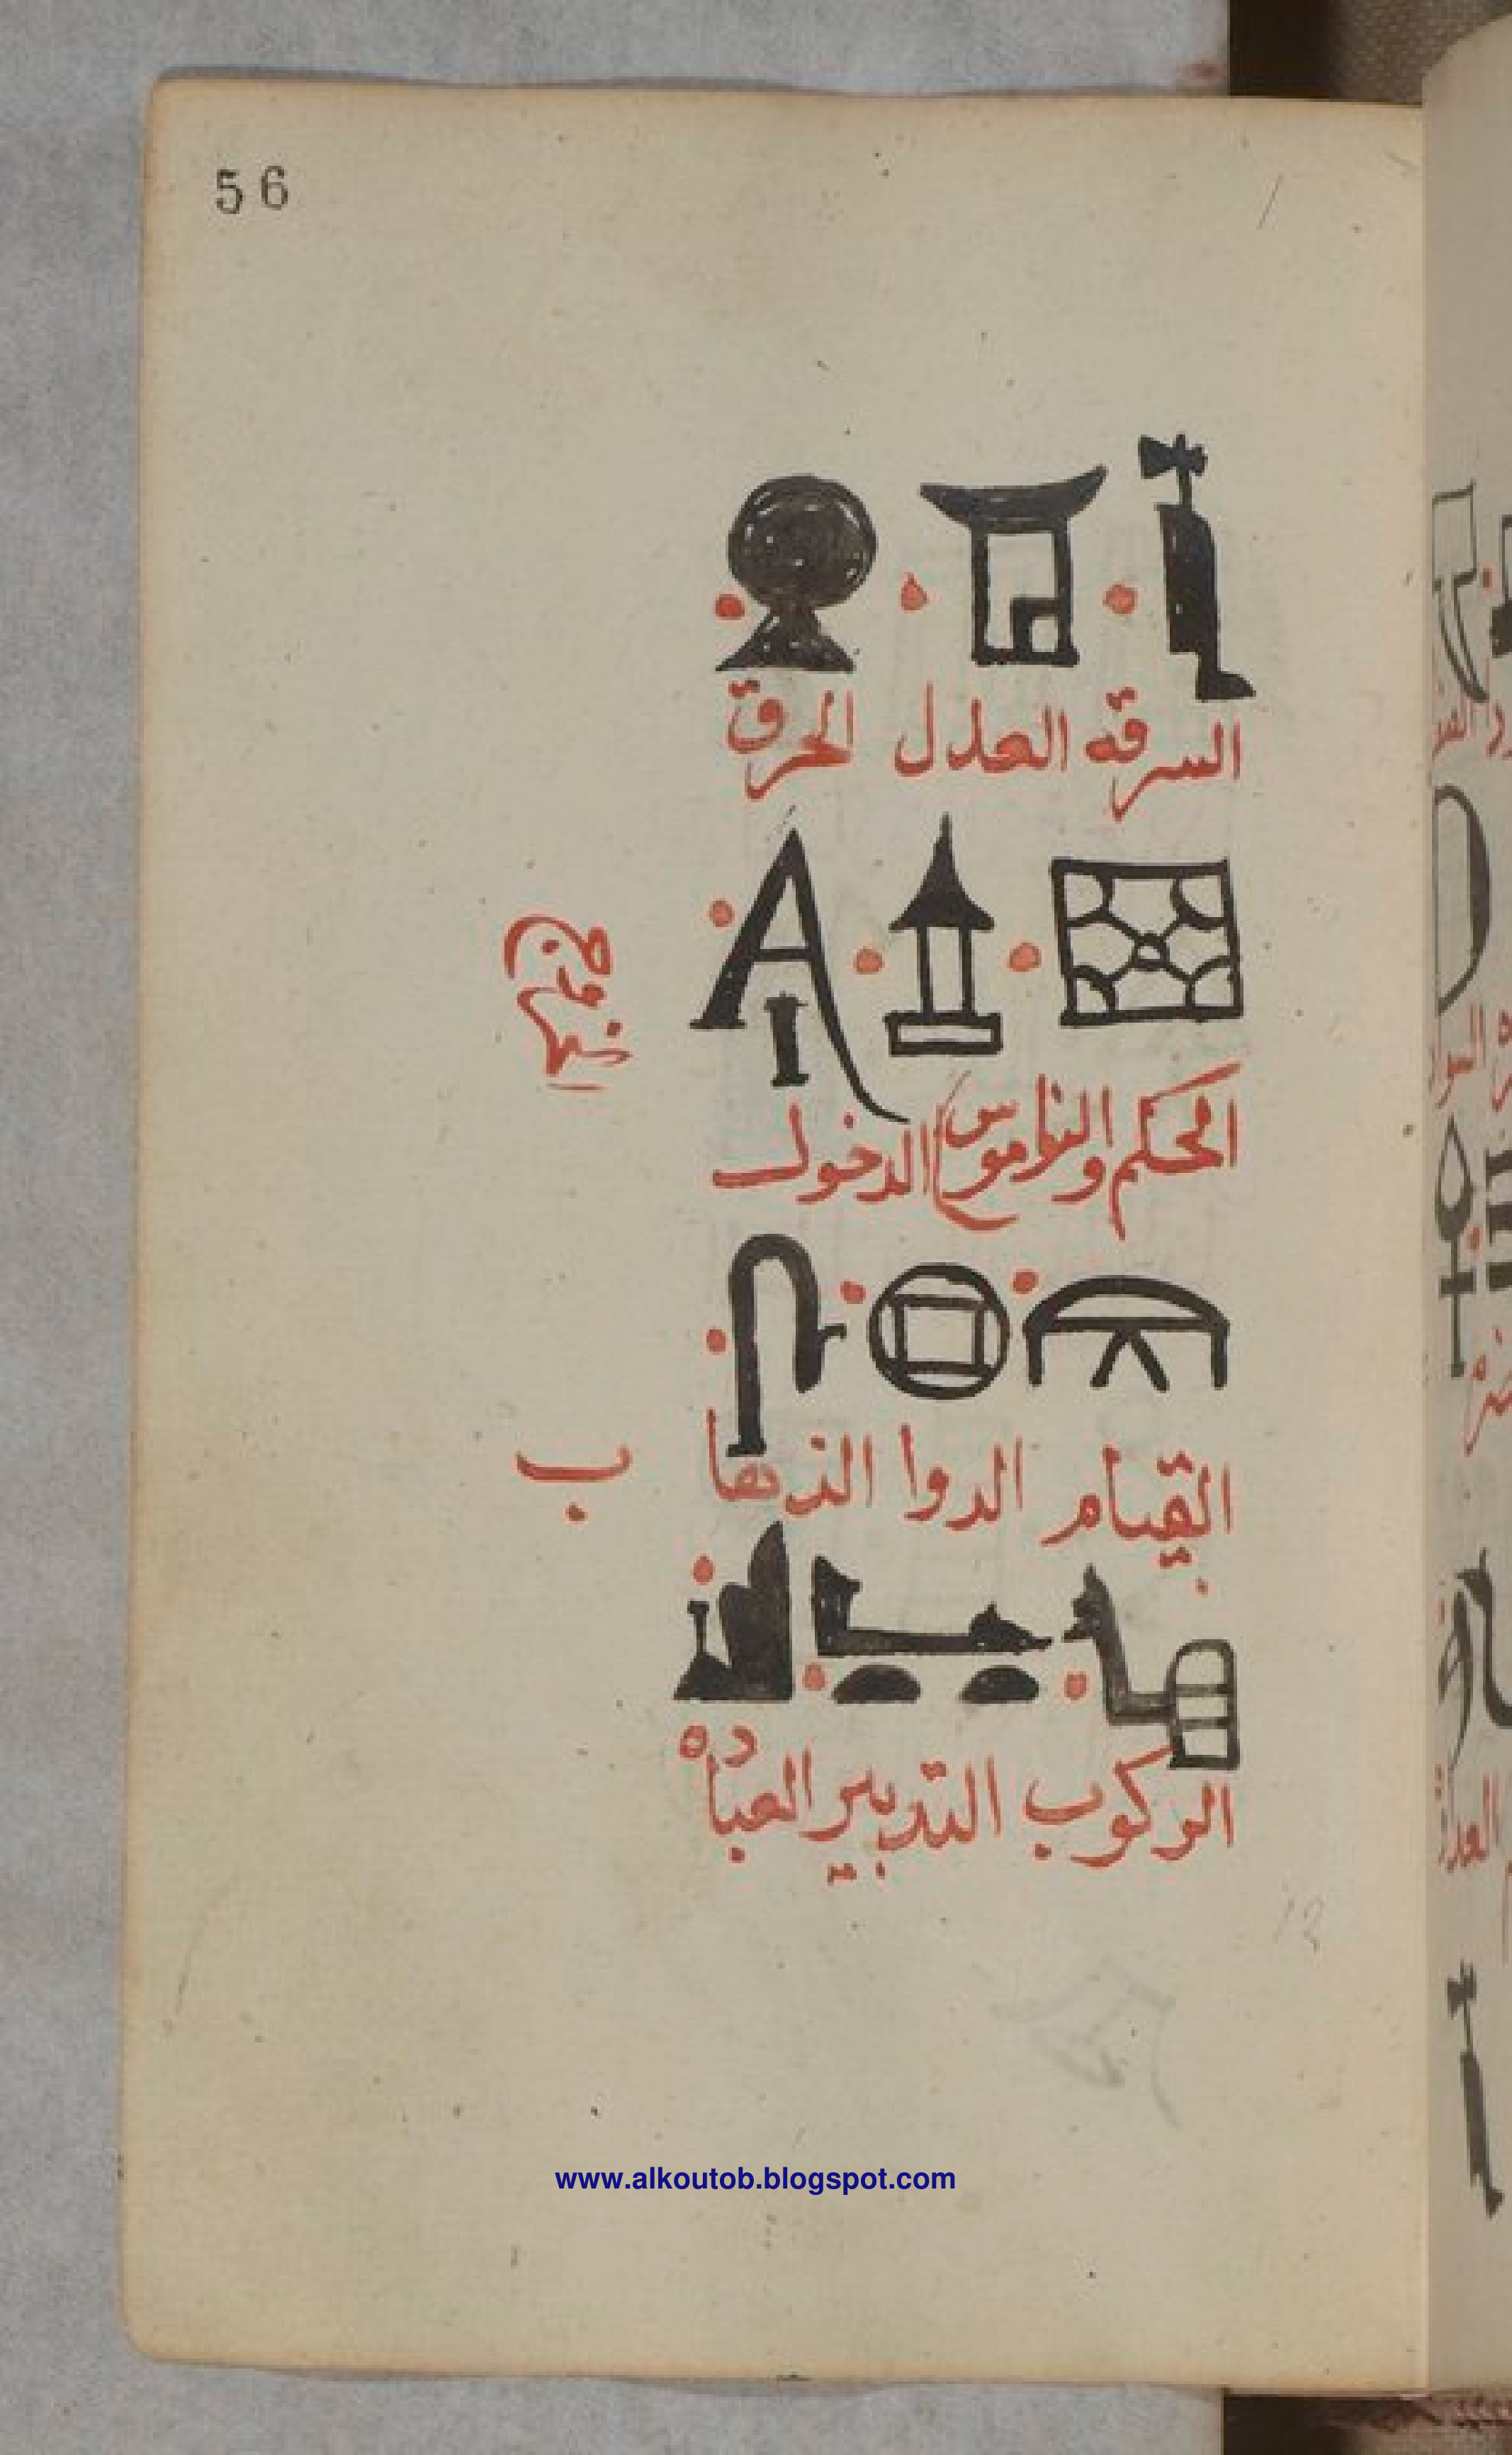 56
السرقه العدل الحرق
الحكم والناموس الدخول
الخروج
القيام الدوا الذهاب
الركوب التدبير العباده
12
www.alkoutob.blogspot.com